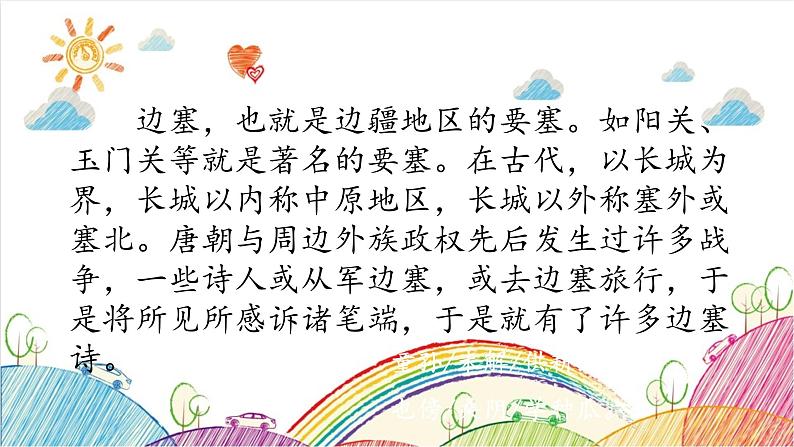 边塞，也就是边疆地区的要塞。如阳关、
玉门关等就是著名的要塞。在古代，以长城为
界，长城以内称中原地区，长城以外称塞外或
塞北。唐朝与周边外族政权先后发生过许多战
争，一些诗人或从军边塞，或去边塞旅行，于
是将所见所感诉诸笔端，于是就有了许多边塞
诗。
童孙/未解/供耕
也傍 桑阴/学种瓜